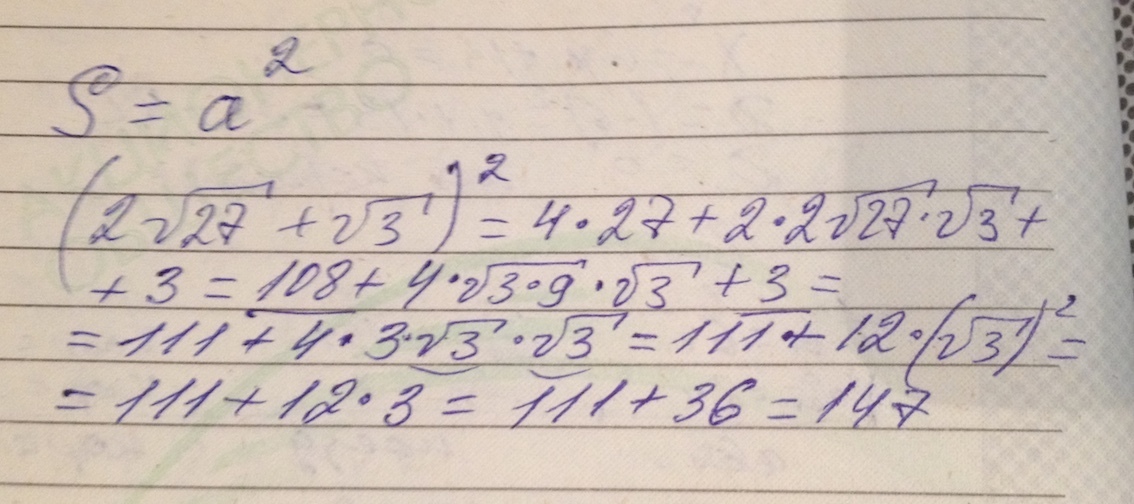 S = a²
(2√27 + √3)² = 4·27 + 2·2√27·√3 +
+ 3 = 108 + 4·√3·9·√3 + 3 =
= 111 + 4·3·√3·√3 = 111 + 12·(√3)² =
= 111 + 12·3 = 111 + 36 = 147